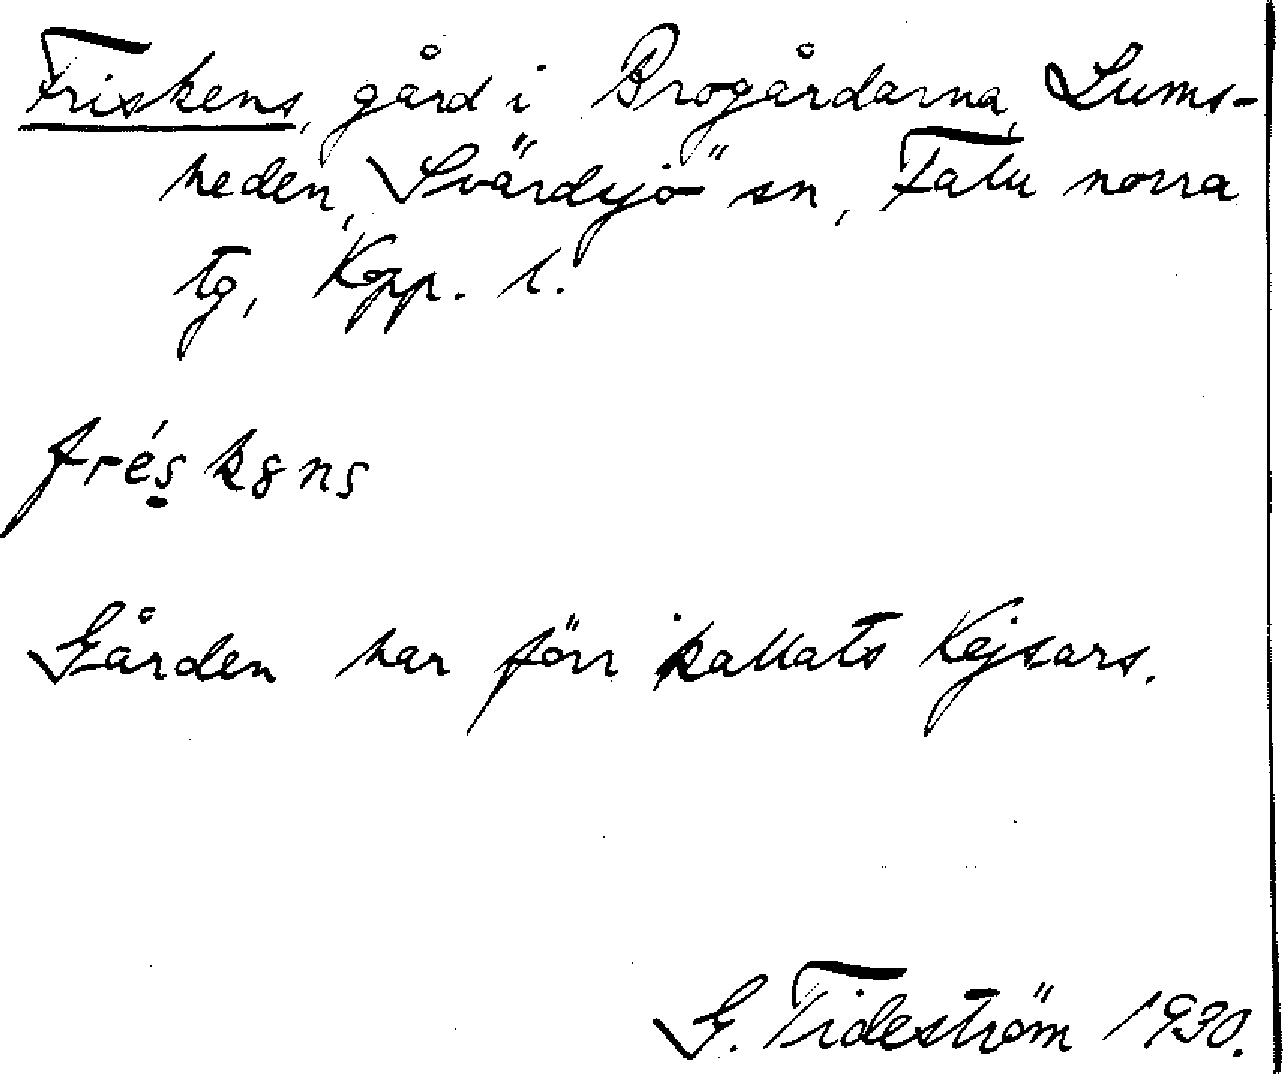 Friskens, gård i Brogårdarna, Lums-
heden, Svärdsjö sn, Falu norra
tg, Kpp. l.
fréskəns
Gården har förr kallats Kejsars.
G. Tideström 1930.